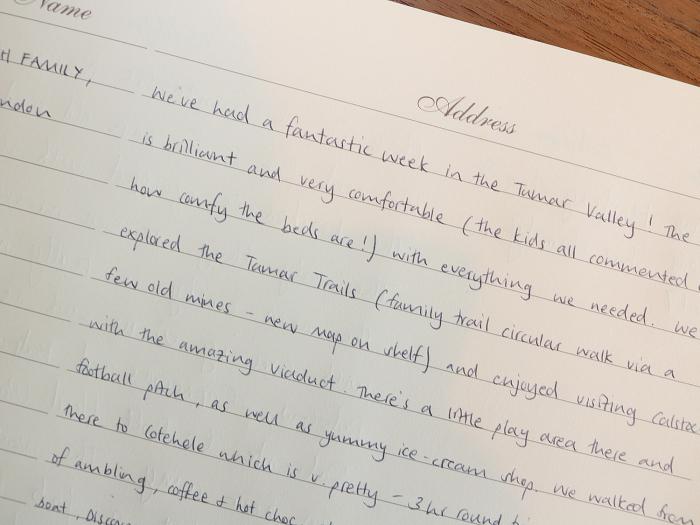 Name
Address
H FAMILY, We've had a fantastic week in the Tamar Valley! The
ndon is brilliant and very comfortable (the kids all commented
how comfy the beds are!) with everything we needed. We
explored the Tamar Trails (family trail circular walk via a
few old mines - new map on shelf) and enjoyed visiting Calstoc
with the amazing viaduct. There's a little play area there and
football pitch, as well as yummy ice-cream shop. We walked from
there to Cotehele which is v. pretty - 3hr round
of ambling, coffee & hot choc
boat, Disco